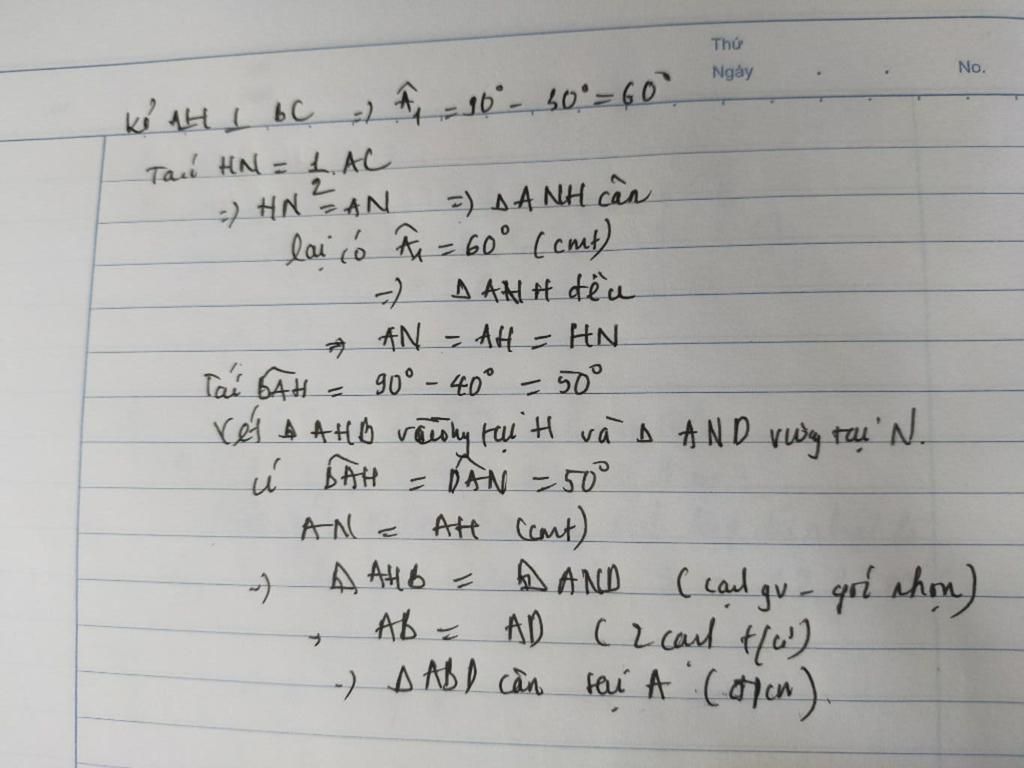 Thứ
Ngày . . No.
Kẻ AH ⊥ BC => Â₁ = 90° - 30° = 60°
Ta có HN = 1/2 AC
=> HN = AN => Δ ANH cân
lại có Â₁ = 60° (cmt)
=> Δ ANH đều
=> AN = AH = HN
Ta có BAH = 90° - 40° = 50°
Xét Δ AHB vuông tại H và Δ AND vuông tại N.
có BAH = DAN = 50°
AN = AH (cmt)
=> Δ AHB = Δ AND (cạnh gv - góc nhọn)
=> AB = AD (2 cạnh t/ứ)
=> Δ ABD cân tại A (đpcm).